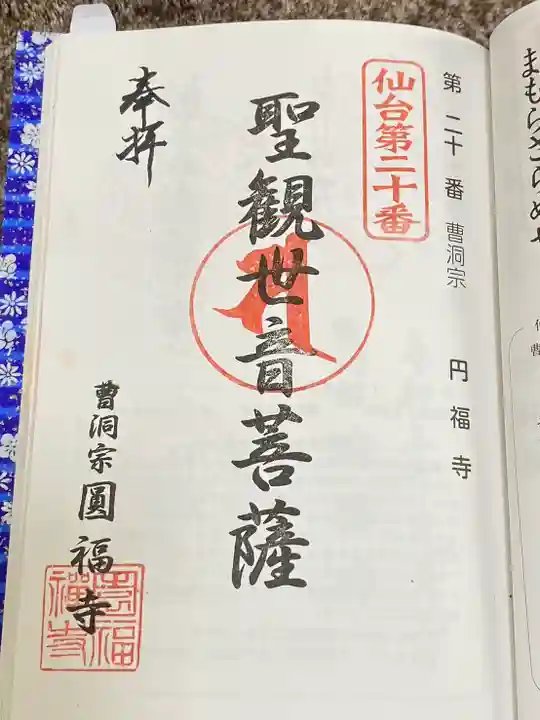 まもらさらめや
第二十番 曹洞宗 円福寺
仙台第二十番
聖観世音菩薩
奉拝
曹洞宗圓福寺